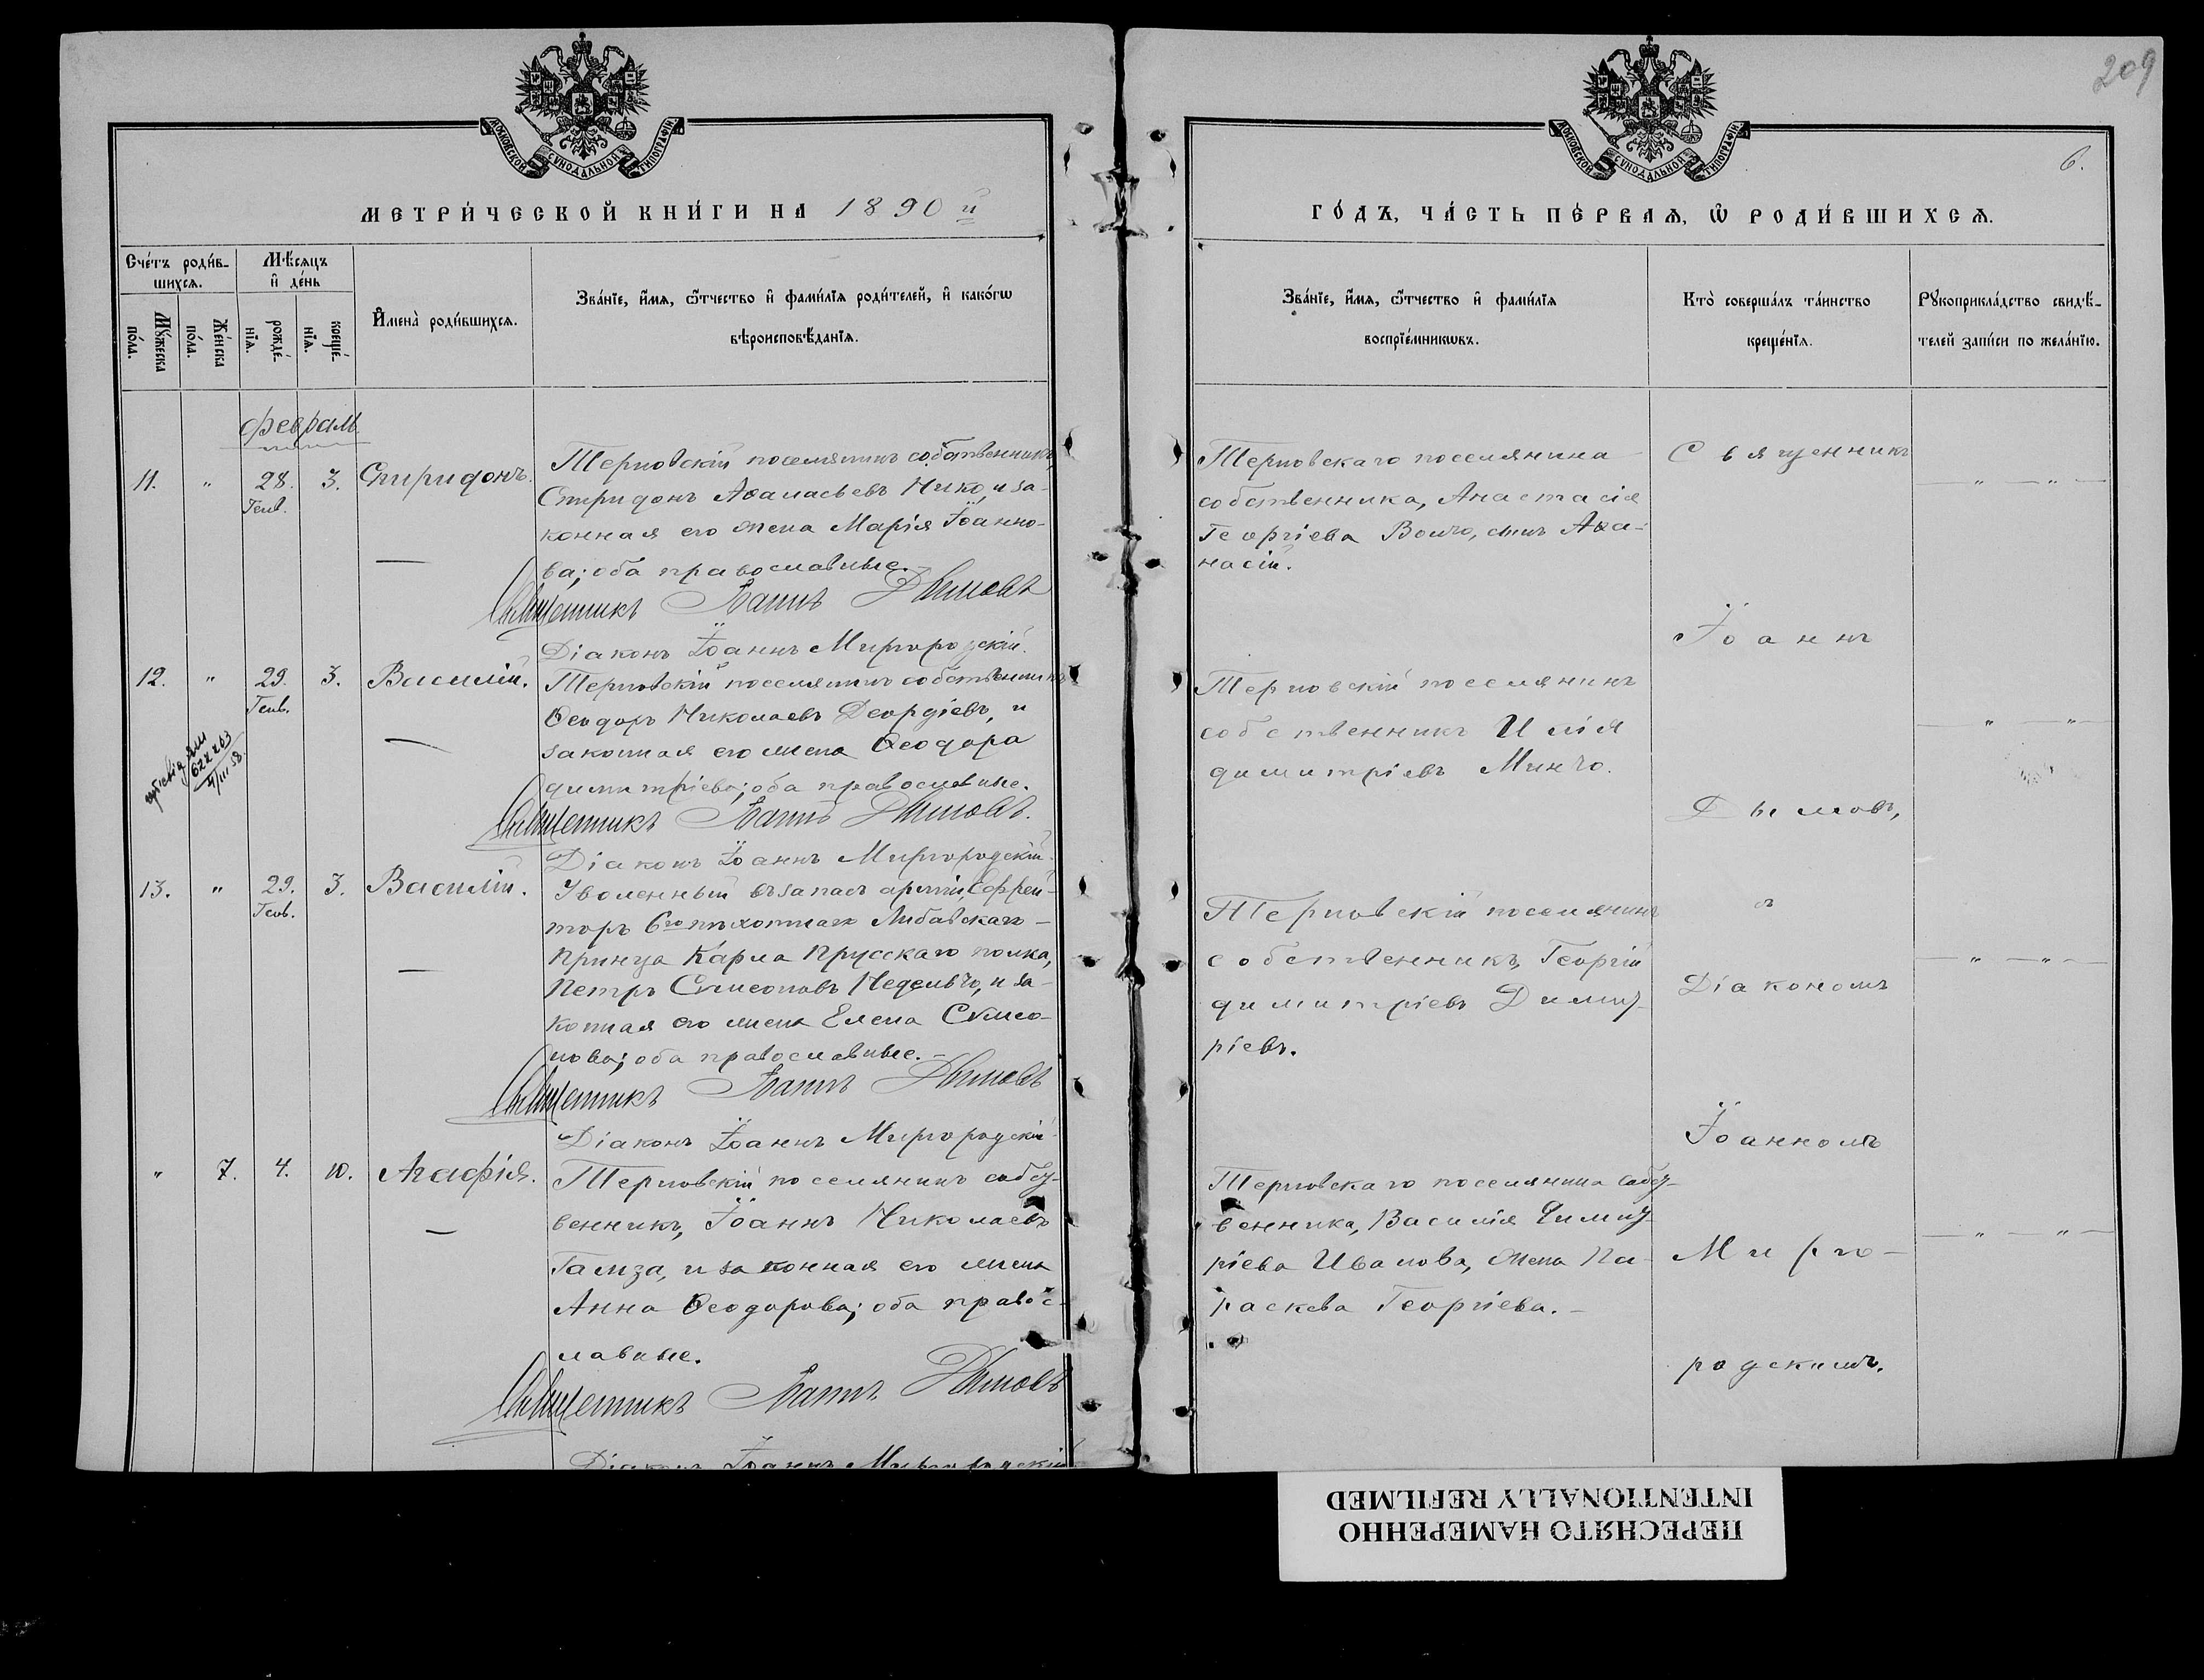 209
6.
МОСКОВСКОЙ СѴНОДАЛЬНОЙ ТИПОГРАФІИ.
МОСКОВСКОЙ СѴНОДАЛЬНОЙ ТИПОГРАФІИ.
МЕТРИ́ЧЕСКОЙ КНИ́ГИ НА 1890 й
ГО́ДЪ, ЧА́СТЬ ПЕ́РВАѦ, Ѽ РОДИ́ВШИХСѦ.
Сче́тъ роди́в-
шихсѧ.
Мѣ́сѧцъ
и҆ де́нь
Мꙋ́жеска
по́ла.
Же́нска
по́ла.
рожде́-
нїѧ.
креще́-
нїѧ.
И҆мена̀ роди́вшихсѧ.
Зва́нїе, и҆́мѧ, ѻ҆́тчество и҆ фами́лїѧ роди́телей, и҆ како́гѡ
вѣроисповѣ́данїѧ.
Зва́нїе, и҆́мѧ, ѻ҆́тчество и҆ фами́лїѧ
воспрїе́мникѡвъ.
Кто̀ соверша́лъ та́инство
креще́нїѧ.
Рꙋкоприкла́дство свидѣ́-
телей за́писи по жела́нїю.
февраль
11. " 28. 3. Спиридонъ.
Генв.
Терновскій поселянинъ собственникъ,
Спиридонъ Аѳанасьевъ Нико, и за-
конная его жена Марія Іоанно-
ва; оба православные.-
Священникъ Іоаннъ Дымовъ
Діаконъ Іоаннъ Миргородскій.
Терновскаго поселянина
собственника, Анастасія
Георгіева Волчо, сынъ Аѳа-
насій.
12. " 29. 3. Василій.
Генв.
Терновскій поселянинъ собственникъ
Ѳеодоръ Николаевъ Деордіевъ, и
законная его жена Ѳеодора
димитріева; оба православные.
Священникъ Іоаннъ Дымовъ.
Діаконъ Іоаннъ Миргородскій.
Терновскій поселянинъ
собственникъ Илія
димитріевъ Минчо.
13. " 29. 3. Василій.
Генв.
Уволенный въ запасъ арміи, Ефрей-
торъ 6го пѣхотнаго Либавскаго
Принца Карла Прусскаго полка,
Петръ Сѵмеоновъ Неделъчо, и за-
конная его жена Елена Сѵмео-
нова; оба православные.-
Священникъ Іоаннъ Дымовъ
Діаконъ Іоаннъ Миргородскій
Терновскій поселянинъ
собственникъ, Георгій
димитріевъ Димит-
ріевъ.
" 7. 4. 10. Агафія.
Терновскій поселянинъ собст-
венникъ, Іоаннъ Николаевъ
Гамза, и законная его жена
Анна Ѳеодорова; оба правос-
лавные.
Священникъ Іоаннъ Дымовъ
Діаконъ Іоаннъ Миргородскій
Терновскаго поселянина собст-
венника, Василія Димит-
ріева Иванова, жена Па-
раскева Георгіева.-
Священникъ
Іоаннъ
Дымовъ,
съ
Діакономъ
Іоанномъ
Мирго-
родскимъ.
ПЕРЕСНЯТО НАМЕРЕННО
INTENTIONALLY REFILMED